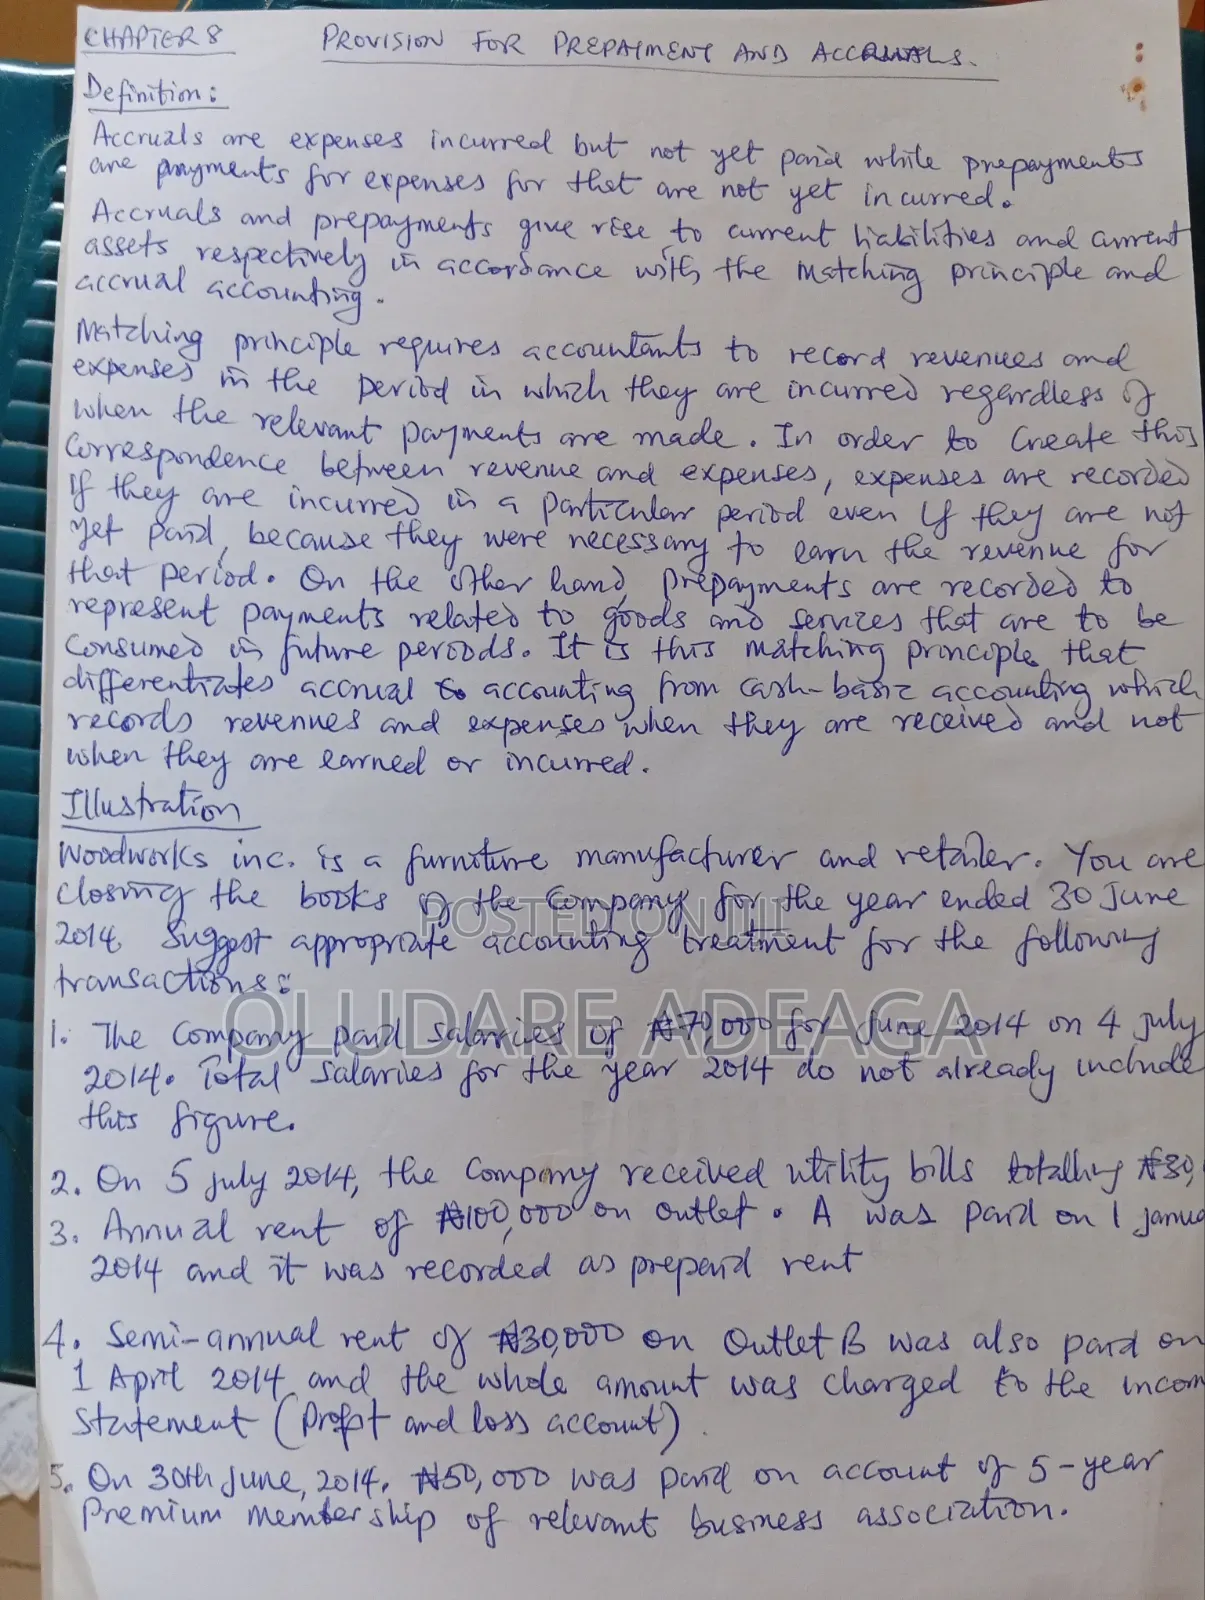 CHAPTER 8 PROVISION FOR PREPAYMENT AND ACCRUALS.
Definition:
Accruals are expenses incurred but not yet paid while prepayments
are payments for expenses for that are not yet incurred.
Accruals and prepayments give rise to current liabilities and current
assets respectively in accordance with the matching principle and
accrual accounting.
Matching principle requires accountants to record revenues and
expenses in the period in which they are incurred regardless of
when the relevant payments are made. In order to create this
correspondence between revenue and expenses, expenses are recorded
if they are incurred in a particular period even if they are not
yet paid, because they were necessary to earn the revenue for
that period. On the other hand, prepayments are recorded to
represent payments related to goods and services that are to be
consumed in future periods. It is this matching principle that
differentiates accrual to accounting from cash-basic accounting which
records revenues and expenses when they are received and not
when they are earned or incurred.
Illustration
Woodworks inc. is a furniture manufacturer and retailer. You are
closing the books of the company for the year ended 30 June
2014. Suggest appropriate accounting treatment for the following
transactions:
POSTED ON JIJI
OLUDARE ADEAGA
1. The company paid salaries of ₦70,000 for June 2014 on 4 July
2014. Total salaries for the year 2014 do not already include
this figure.
2. On 5 July 2014, the company received utility bills totalling ₦30,
3. Annual rent of ₦100,000 on outlet. A was paid on 1 janua
2014 and it was recorded as prepaid rent
4. Semi-annual rent of ₦30,000 on Outlet B was also paid on
1 April 2014 and the whole amount was charged to the incom
statement (Profit and loss account).
5. On 30th June, 2014. ₦50,000 was paid on account of 5-year
Premium membership of relevant business association.